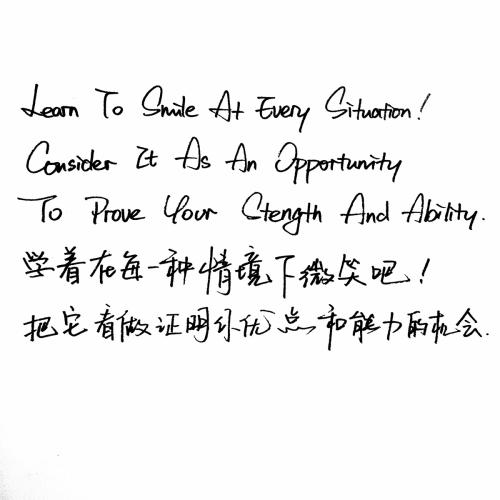 Learn To Smile At Every Situation!
Consider It As An Opportunity
To Prove Your Stength And Ability.
学着在每一种情境下微笑吧!
把它看做证明你优点和能力的机会.